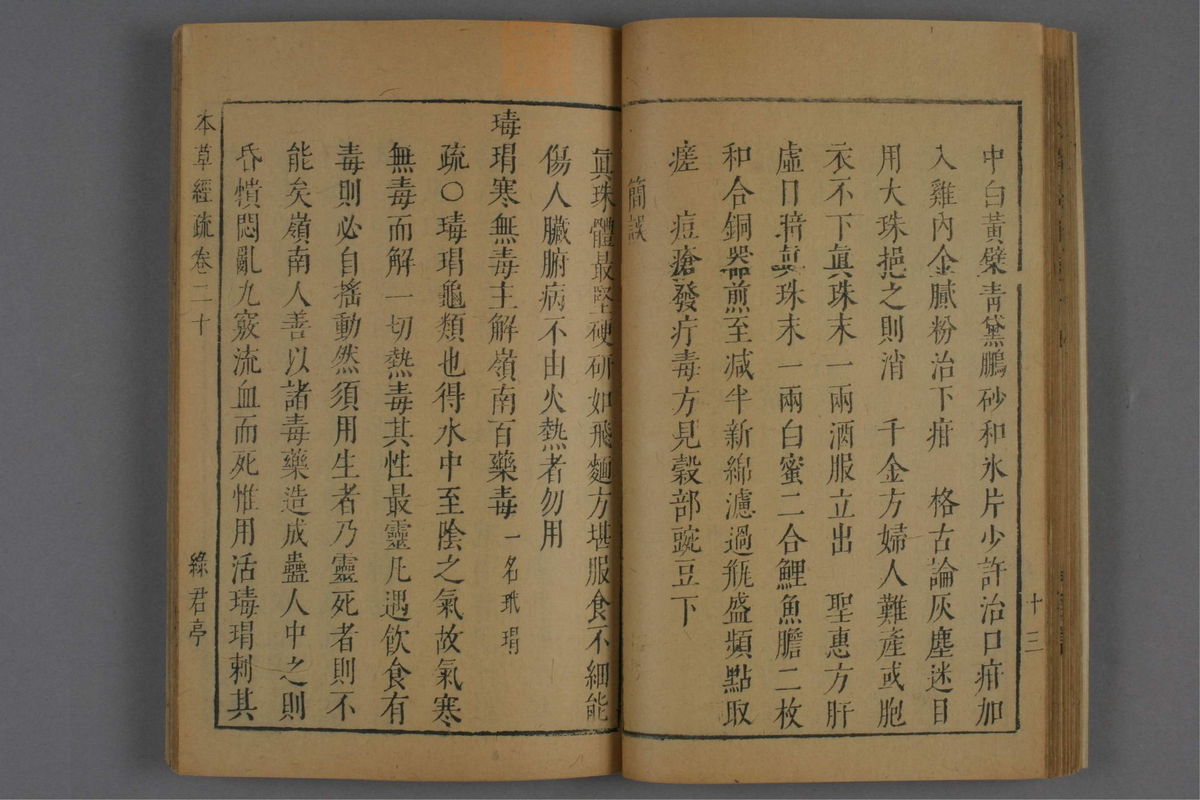 中白黃蘗靑黛鵬砂和氷片少許治口疳加
入雞內金膩粉治下疳　格古論灰塵迷目
用大珠挹之則消　千金方婦人難產或胞
衣不下眞珠末一兩酒服立出　聖惠方肝
虛目暗眞珠末一兩白蜜二合鯉魚膽二枚
和合銅器煎至减半新綿濾過甁盛頻點取
瘥　痘瘡發疔毒方見穀部豌豆下
簡誤
十三
眞珠體最堅硬硏如飛麵方堪服食不細能
傷人臟腑病不由火熱者勿用
瑇瑁寒無毒主解嶺南百藥毒一名玳瑁
疏○瑇瑁龜類也得水中至陰之氣故氣寒
無毒而解一切熱毒其性最靈凡遇飮食有
毒則必自搖動然須用生者乃靈死者則不
能矣嶺南人善以諸毒藥造成蠱人中之則
昏憒悶亂九竅流血而死惟用活瑇瑁刺其
本草經疏卷二十
綠君亭